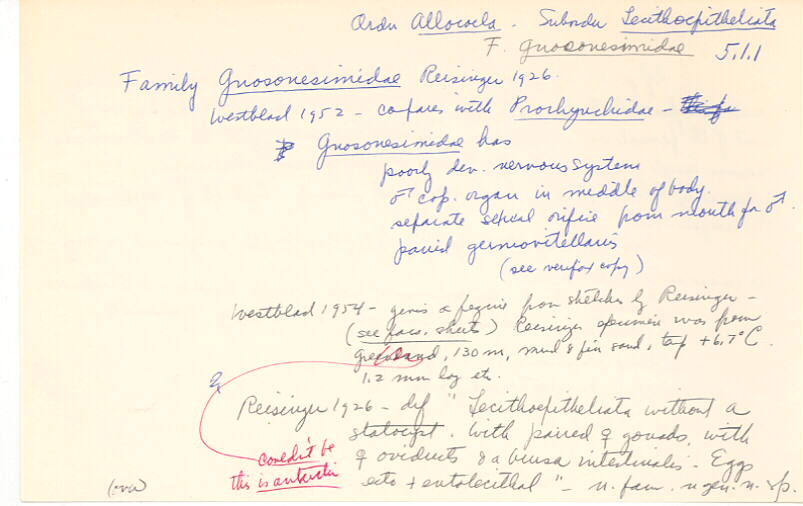 Order Allocoela. Suborder Lecithoepitheliata
F. Gnosonesimidae 5.1.1
Family Gnosonesimidae Reisinger 1926.
Westblad 1952 - compares with Prorhynchidae -
Gnosonesimidae has
poorly dev. nervous system
♂ cop. organ in middle of body.
separate sexual orifice from mouth for ♂.
paired germovitellaris
(see verifax copy)
Westblad 1954 - gives a figure from sketches by Reisinger -
(see facs. sheets) Reisinger specimen was from
Greenland, 130 m, mud & fin sand, temp +6.7°C.
1.2 mm long etc.
Reisinger 1926 - def "Lecithoepitheliata without a
statocyst. With paired ♀ gonads, with
♀ oviducts & a bursa intestinalis. Eggs
ecto + entolecithal" - n. fam. n gen. n. sp.
could it be
this is antarctic
(over)